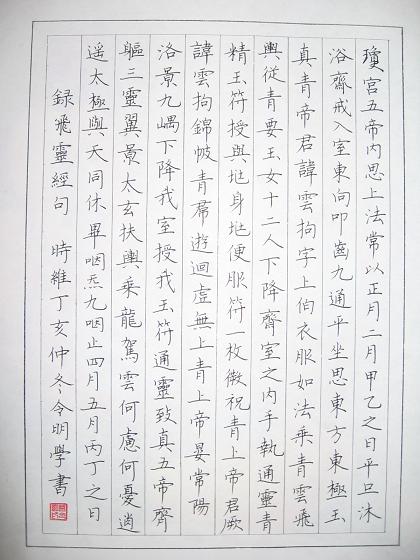 瓊宮五帝內思上法常以正月二月甲乙之日平旦沐
浴齋戒入室東向叩齒九通平坐思東方東極玉
真青帝君諱雲拘字上伯衣服如法乘青雲飛
輿從青要玉女十二人下降齋室之內手執通靈青
精玉符授與兆身兆便服符一枚微祝青上帝君厥
諱雲拘錦帔青帬遊迴虛無上青上帝晏常陽
洛景九嵎下降我室授我玉符通靈致真五帝齊
軀三靈翼景太玄扶輿乘龍駕雲何慮何憂逍
遥太極與天同休畢咽炁九咽止四月五月丙丁之日
録飛靈經句 時維丁亥仲冬令明學書